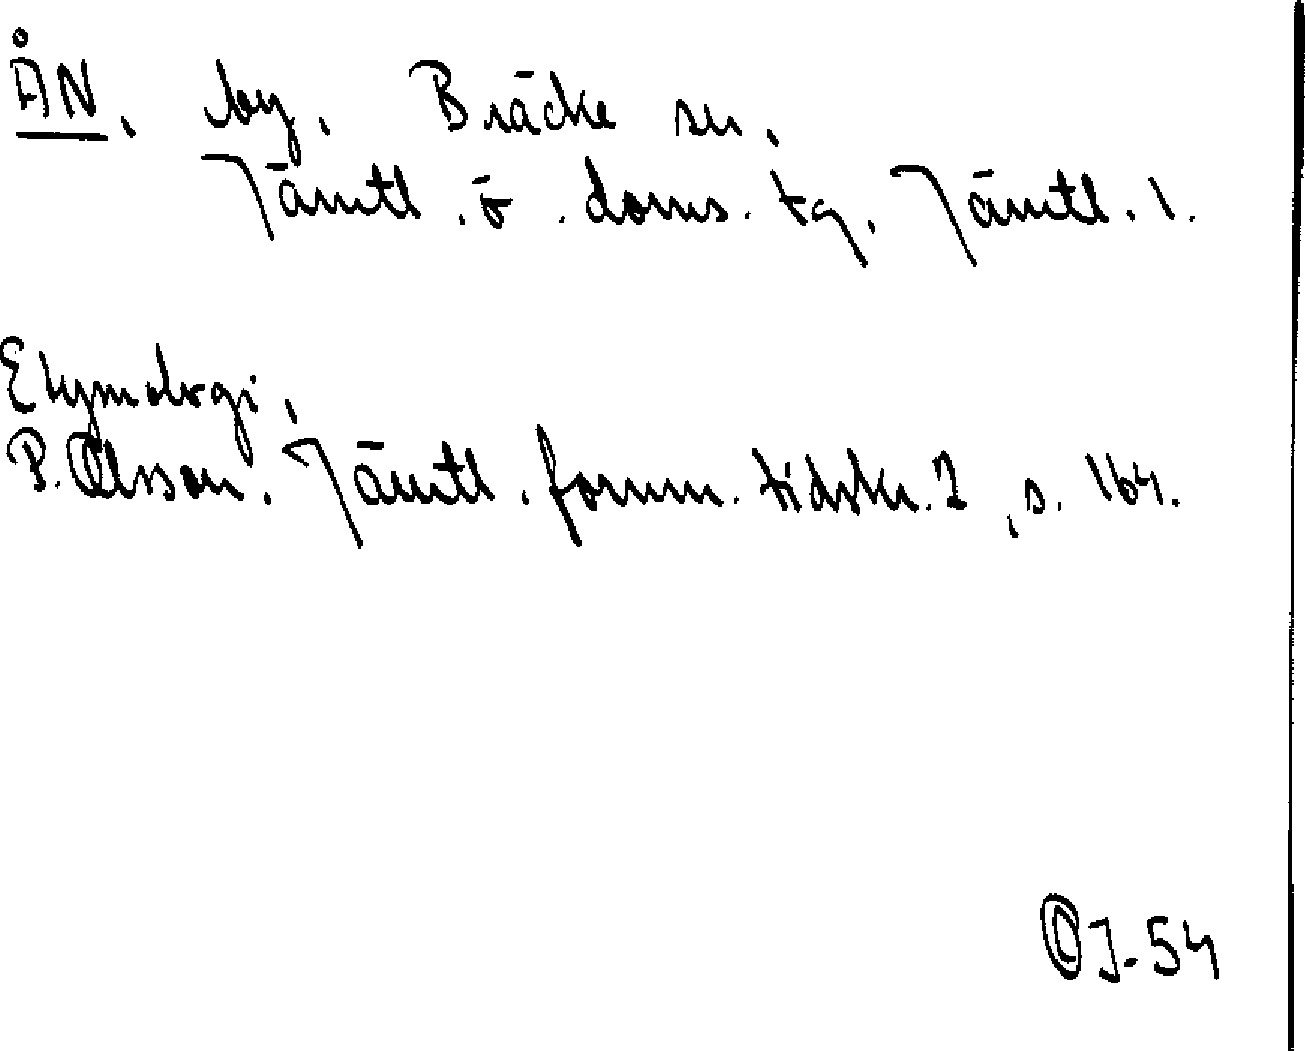 ÅN, by, Bräcke sn,
Jämtl. ö. doms. tg, Jämtl. l.
Etymologi,
P. Olsson. Jämtl. fornm. tidskr. 2, s. 164.
OJ-54